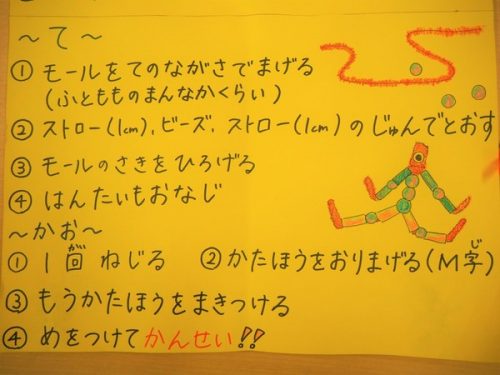 ～て～
① モールをてのながさでまげる
(ふともものまんなかくらい)
② ストロー(1cm)、ビーズ、ストロー(1cm)のじゅんでとおす
③ モールのさきをひろげる
④ はんたいもおなじ
～かお～
① 1回ねじる ② かたほうをおりまげる(M字)
③ もうかたほうをまきつける
④ めをつけてかんせい!!